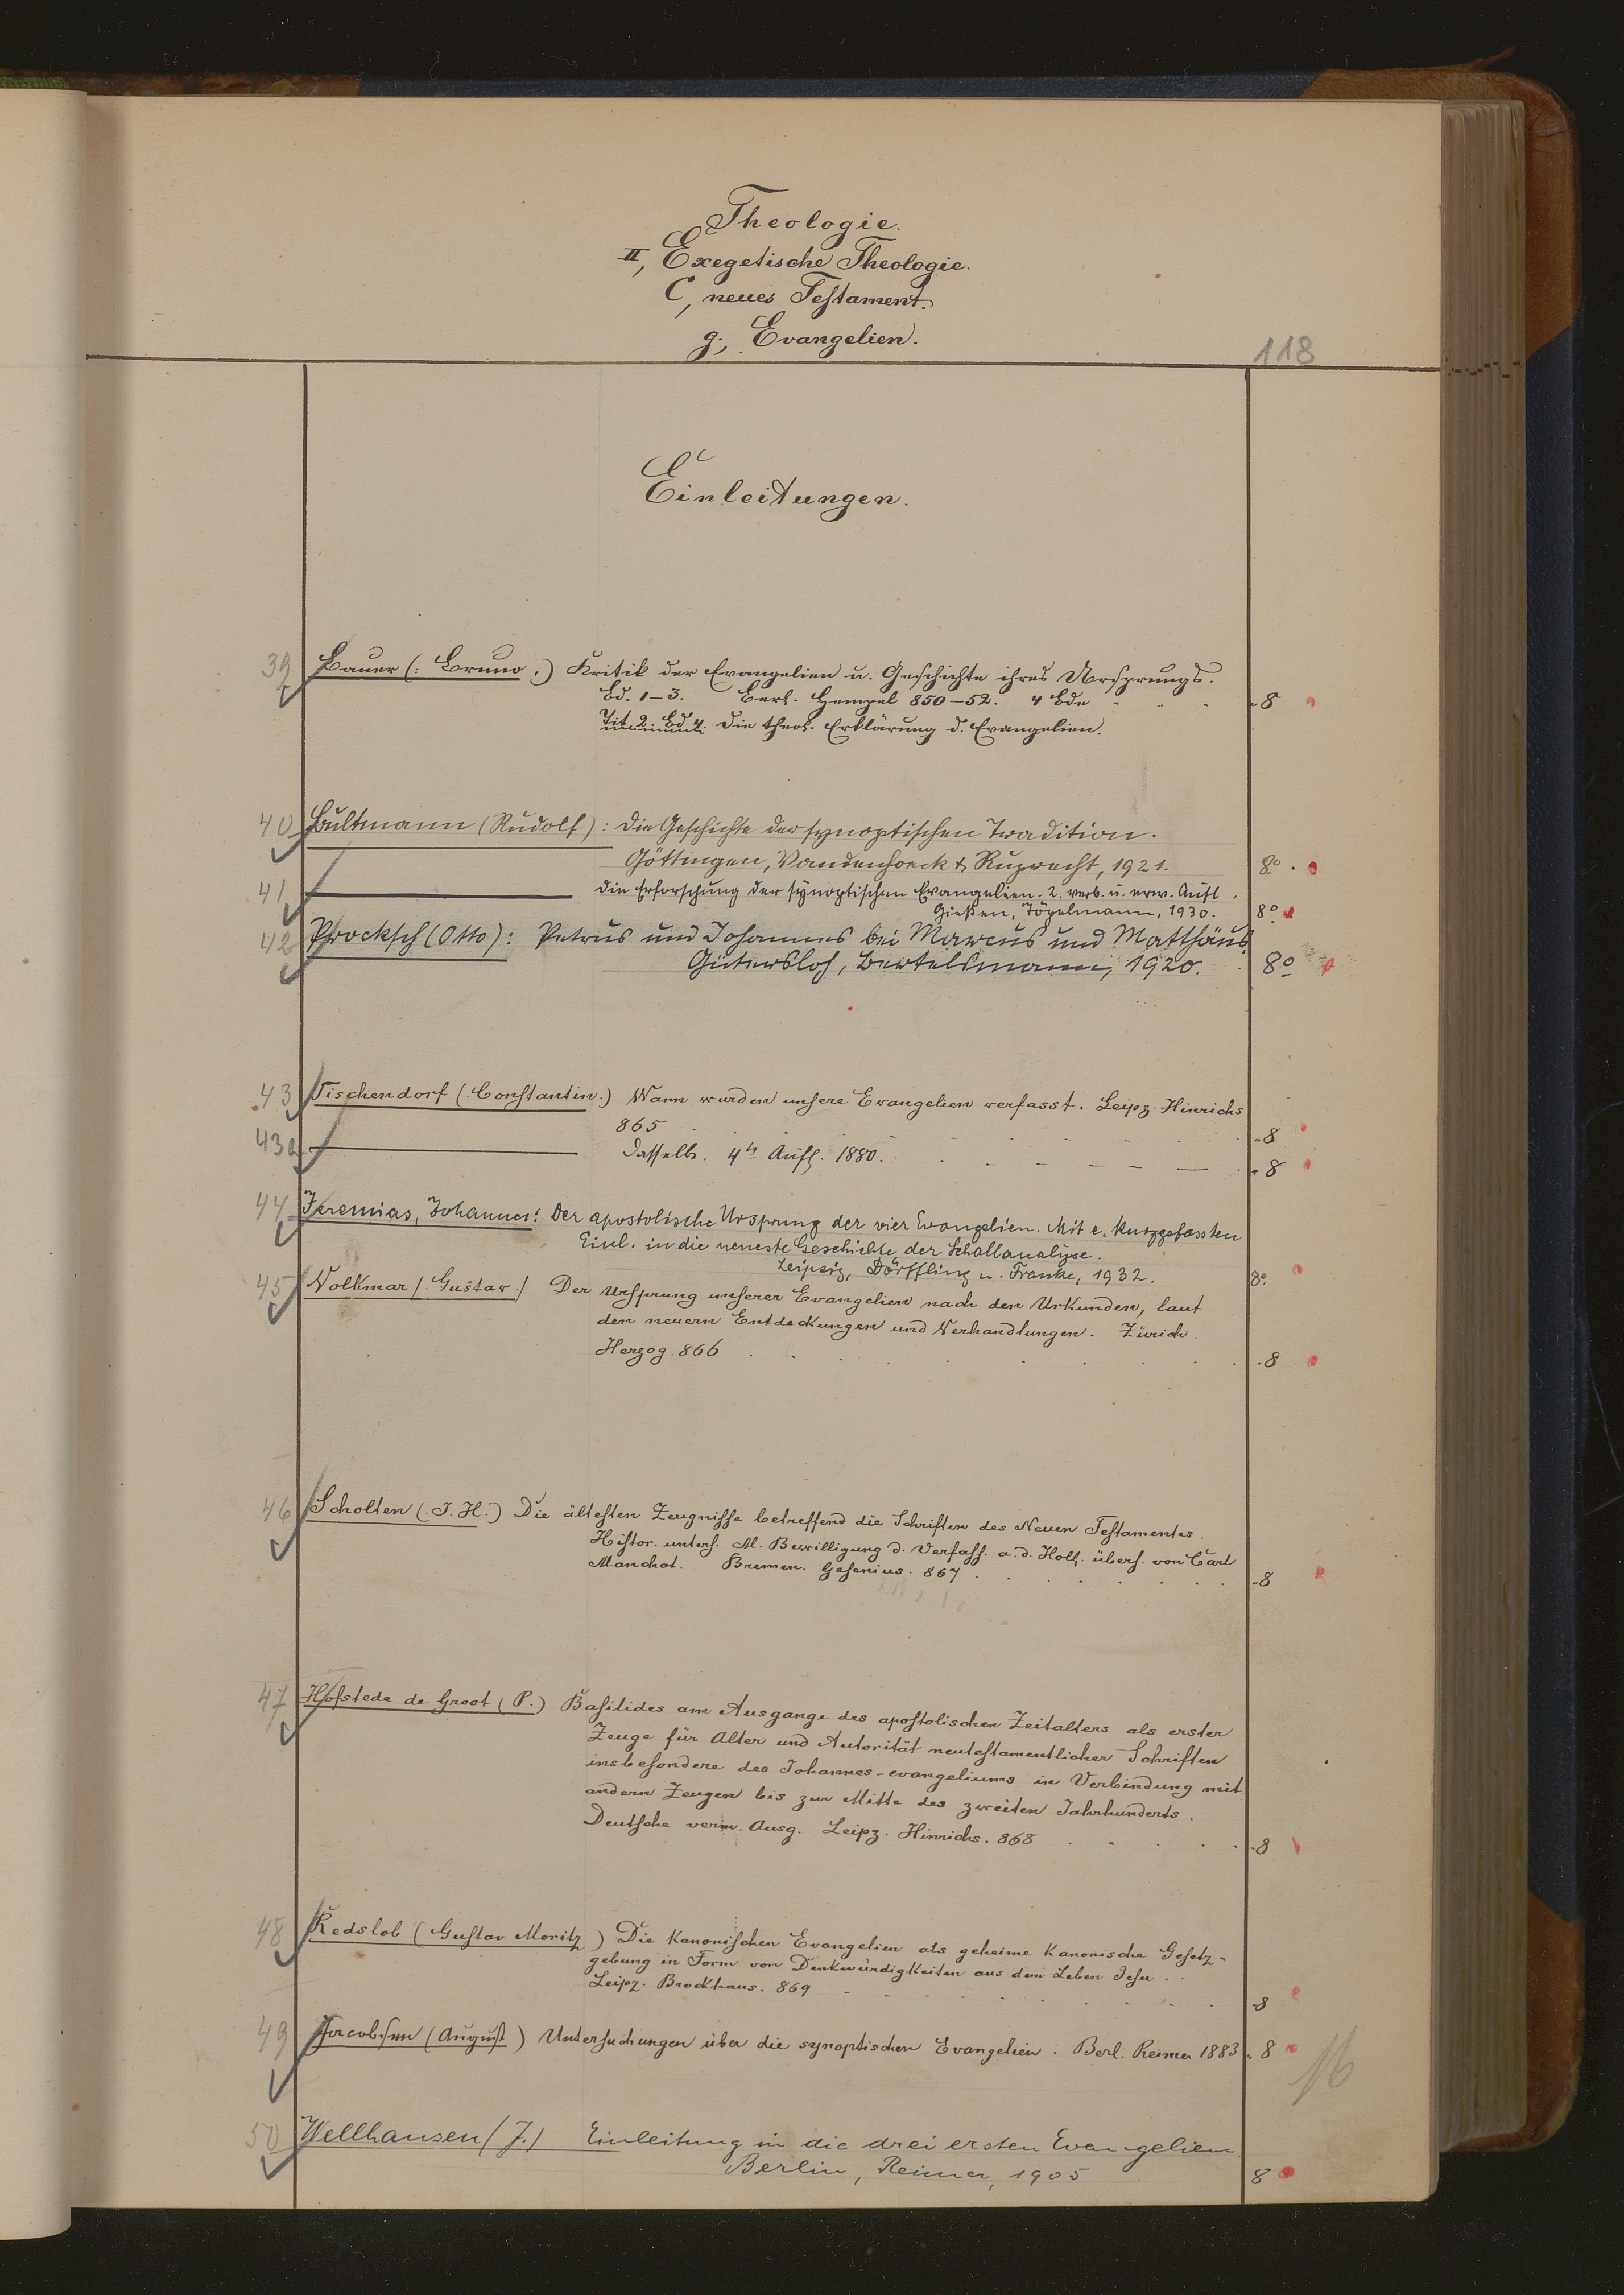 Theologie.
II, Exegetische Theologie.
C, neues Testament.
g., Evangelien.
118
Einleitungen.
39 Bauer (: Bruno :) Kritik der Evangelien u. Geschichte ihres Ursprungs.
Bd. 1–3. Berl. Hempel 850–52. 4 Bde 8
Tit. 2. Bd 4. Die theol. Erklärung d. Evangelien.
40 Bultmann (Rudolf): Die Geschichte der synoptischen Tradition.
Göttingen, Vandenhoeck & Ruprecht, 1921. 8°
41 — Die Erforschung der synoptischen Evangelien. 2. verb. u. erw. Aufl.
Gießen, Töpelmann, 1930. 8°
42 Procksch (Otto): Petrus und Johannes bei Marcus und Matthäus
Gütersloh, Bertelsmann, 1920. 8°
43 Tischendorf (: Constantin :) Wann wurden unsere Evangelien verfasst. Leipz. Hinrichs
865 8
43a — Dasselbe. 4te Aufl. 1880. 8
44 Jeremias, Johannes: Der apostolische Ursprung der vier Evangelien. Mit e. kurzgefassten
Einl. in die neueste Geschichte der Schallanalyse.
Leipzig, Dörffling u. Franke, 1932. 8°
45 Volkmar (: Gustav :) Der Ursprung unserer Evangelien nach den Urkunden, laut
den neuern Entdeckungen und Verhandlungen. Zürich.
Herzog. 866 8
46 Scholten (: J. H. :) Die ältesten Zeugnisse betreffend die Schriften des Neuen Testamentes.
Histor. unters. M. Bewilligung d. Verfass. a. d. Holl. übers. von Carl
Manchot. Bremen. Gesenius. 867 8
47 Hofstede de Groot (P.) Basilides am Ausgange des apostolischen Zeitalters als erster
Zeuge für Alter und Autorität neutestamentlicher Schriften
insbesondere des Johannes-evangeliums in Verbindung mit
andern Zeugen bis zur Mitte des zweiten Jahrhunderts.
Deutsche verm. Ausg. Leipz. Hinrichs. 868 8
48 Redslob (Gustav Moritz) Die kanonischen Evangelien als geheime kanonische Gesetz-
gebung in Form von Denkwürdigkeiten aus dem Leben Jesu.
Leipz. Brockhaus. 869 8
49 Jacobsen (August) Untersuchungen über die synoptischen Evangelien. Berl. Reimer 1883 8
16
50 Wellhausen (J.) Einleitung in die drei ersten Evangelien
Berlin, Reimer, 1905 8